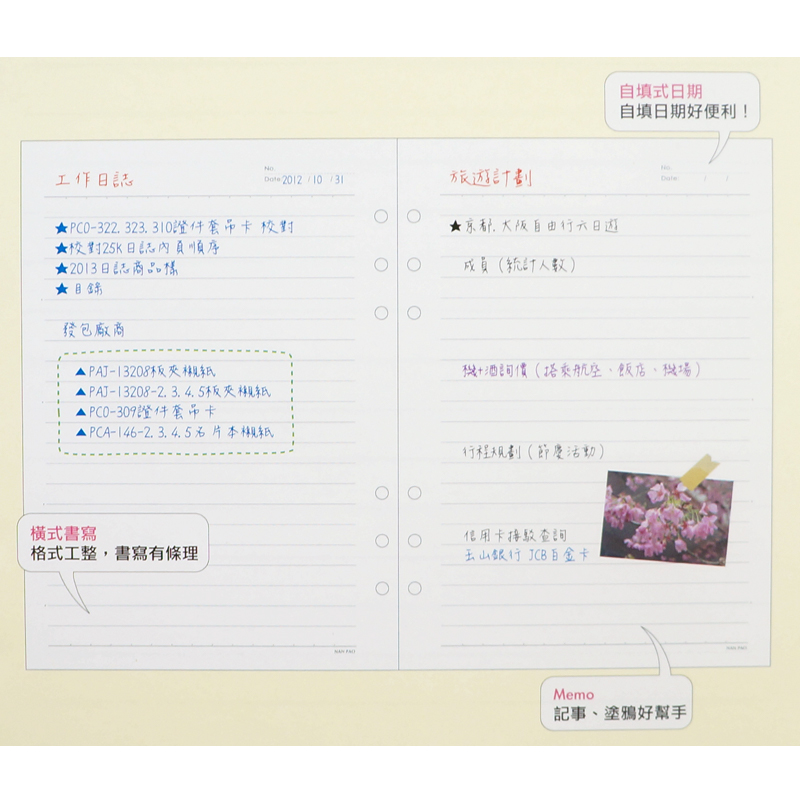 自填式日期
自填日期好便利！
工作日誌
No:
Date: 2012 / 10 / 31
★PCO-322. 323. 310證件套吊卡 校對
★校對25K日誌內頁順序
★2013日誌商品樣
★目錄
發包廠商
▲PAJ-13208板夾襯紙
▲PAJ-13208-2. 3. 4. 5板夾襯紙
▲PCO-309證件套吊卡
▲PCA-146-2. 3. 4. 5名片本襯紙
橫式書寫
格式工整，書寫有條理
NAN PAO
旅遊計劃
No:
Date: / /
★京都. 大阪自由行六日遊
成員（統計人數）
機+酒詢價（搭乘航空、飯店、機場）
行程規劃（節慶活動）
信用卡接駁查詢
玉山銀行 JCB白金卡
NAN PAO
Memo
記事、塗鴉好幫手